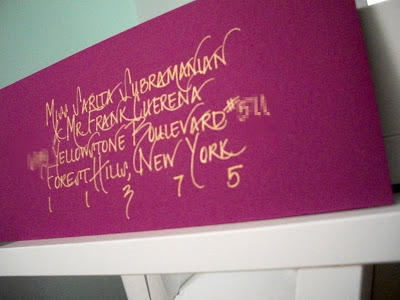 Miss Sarita Subramanian
& Mr Frank Cherena
Yellowstone Boulevard #
Forest Hills, New York
1 1 3 7 5